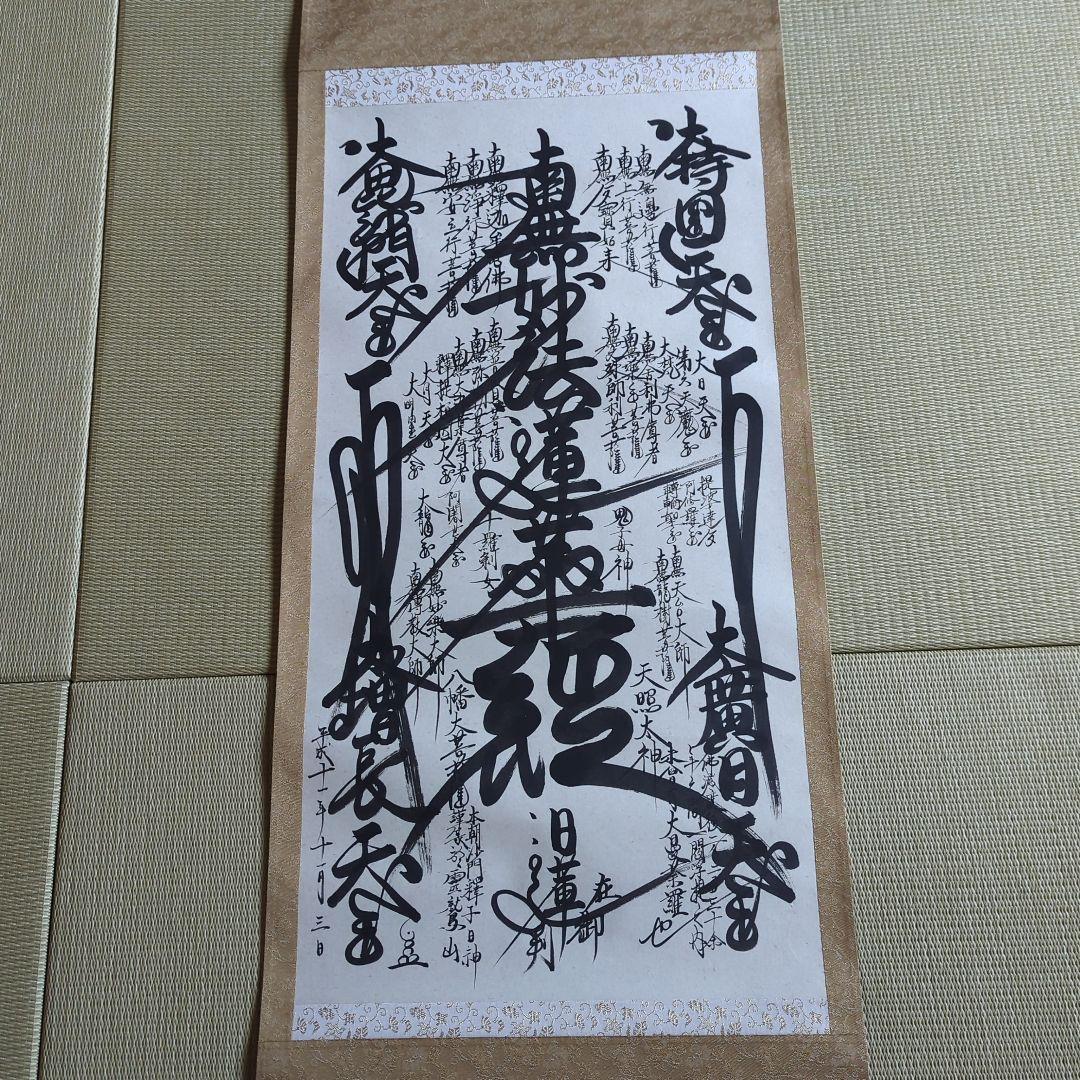 大持国天王
南無無邊行菩薩
南無上行菩薩
南無多寶如来
南無妙法蓮華経
南無釋迦牟尼佛
南無淨行菩薩
南無安立行菩薩
大毘沙門天王
大日天王
第六天魔王
大梵天王
南無舎利弗尊者
南無薬王菩薩
南無文殊師利菩薩
南無普賢菩薩
南無弥勒菩薩
南無大迦葉尊者
釋提桓因大王
大月天王
大明星天王
提婆達多
阿修羅王
轉輪聖王
鬼子母神
十羅刹女
阿闍世王
大龍王
南無天台大師
南無龍樹菩薩
南無妙楽大師
南無傳教大師
大廣目天王
天照太神
八幡大菩薩
大増長天王
佛滅後二千二百三十余
未曾有大曼荼羅也
日蓮
在御判
本朝沙門釋子日神
平成十一年十一月三日